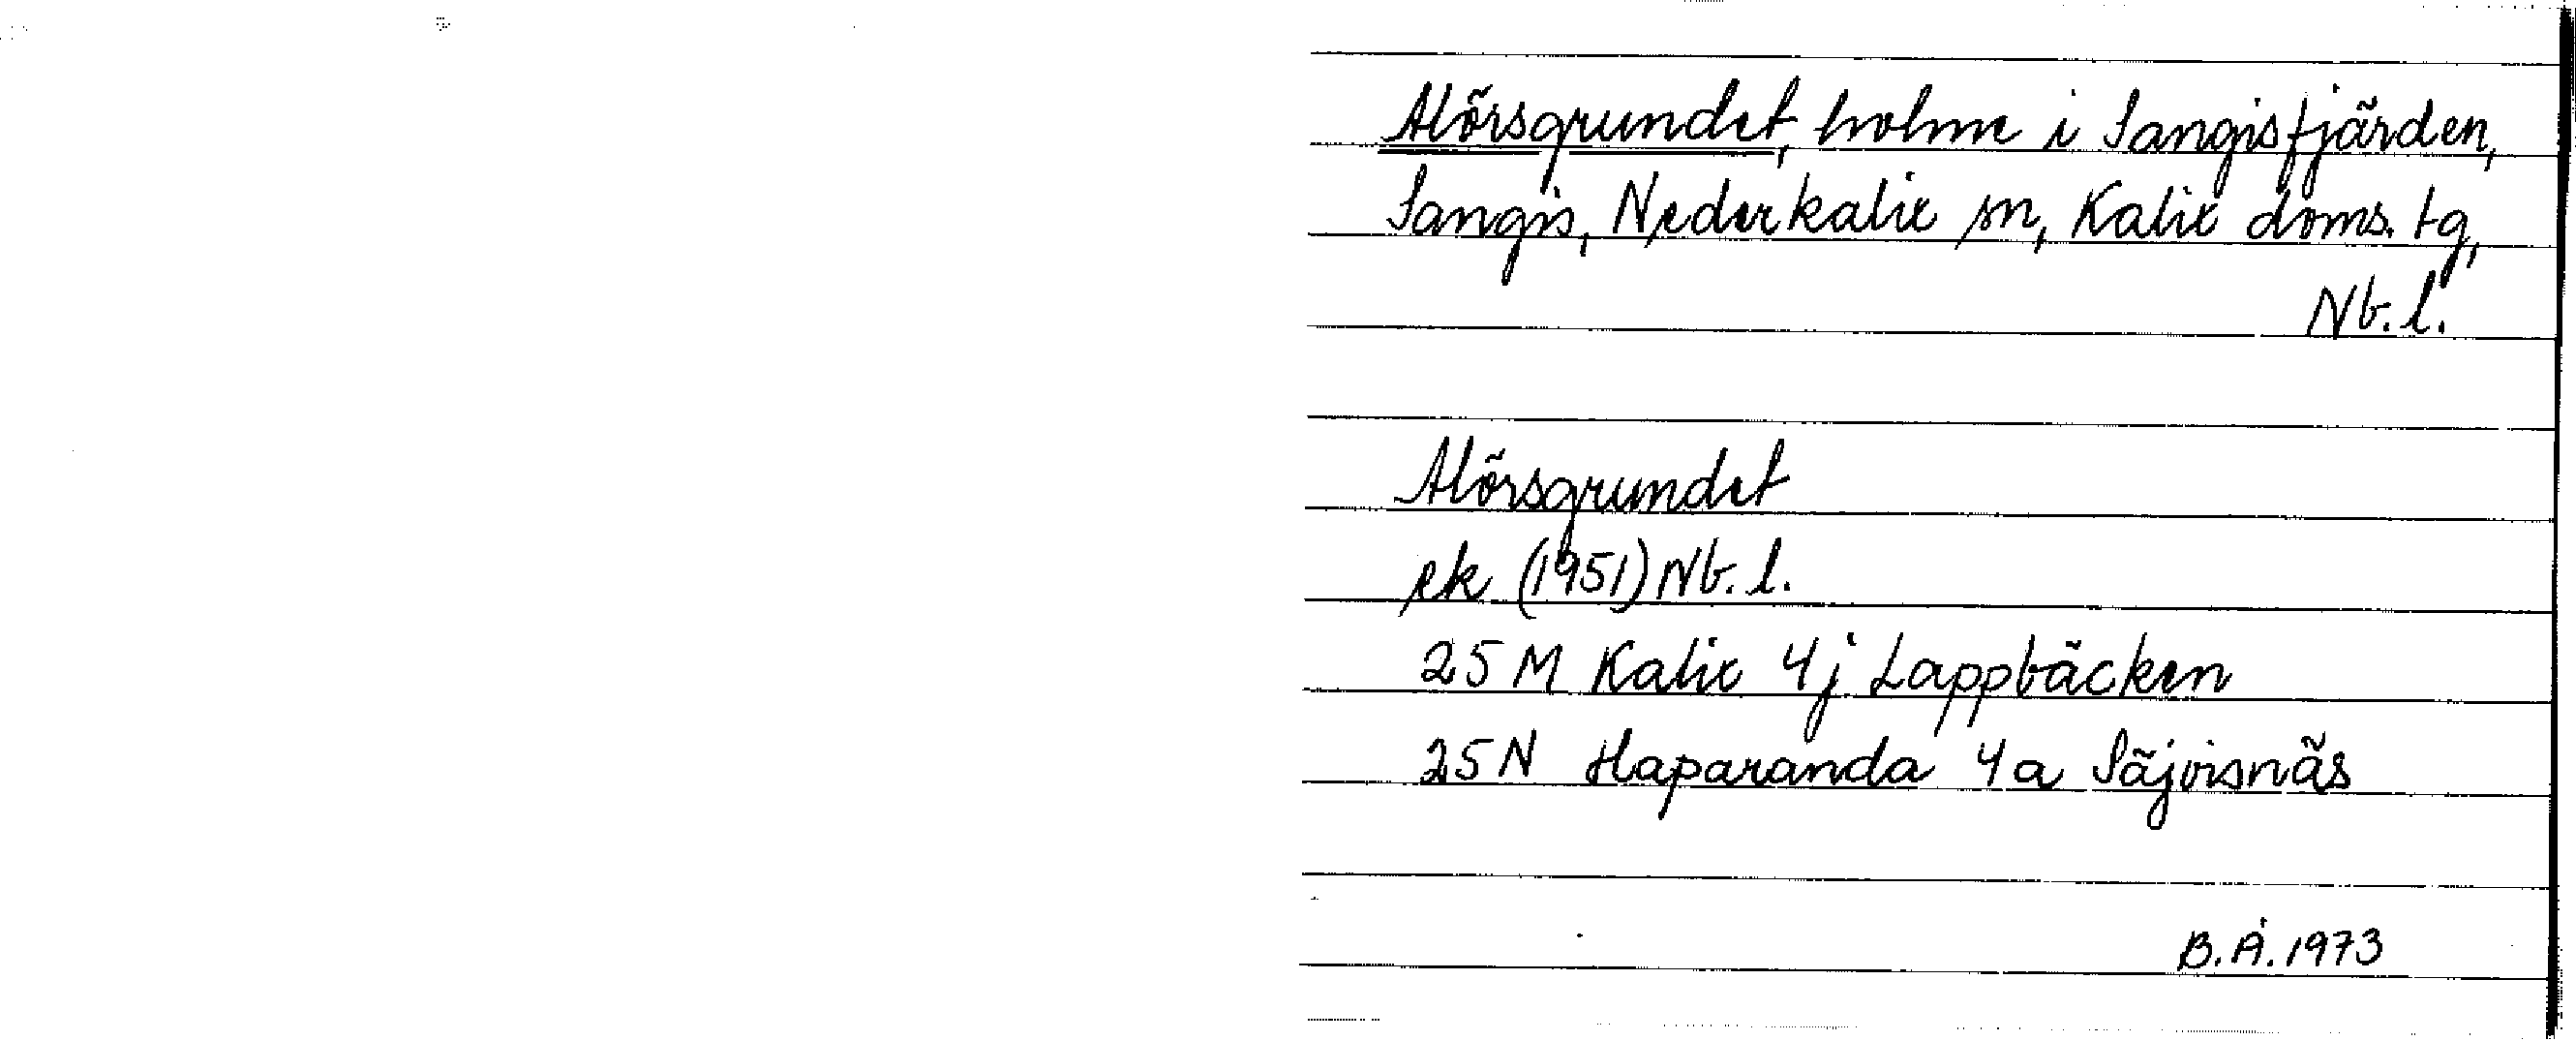 Alörsgrundet, holme i Sangisfjärden,
Sangis, Nederkalix sn, Kalix doms. tg,
Nb. l.
Alörsgrundet
ek (1951) Nb. l.
25 M Kalix 4j Lappbäcken
25 N Haparanda 4a Säjvisnäs
B.Å. 1973